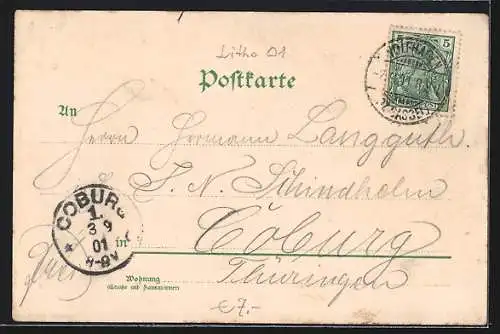 Litho 01
5
Postkarte
An
Herrn Hermann Langguth.
J. N. Schindhelm
COBURG
1.
3 9
01
8-9V
in Cöburg
Thüringen
Wohnung
(Straße und Hausnummer)
€ 7.-